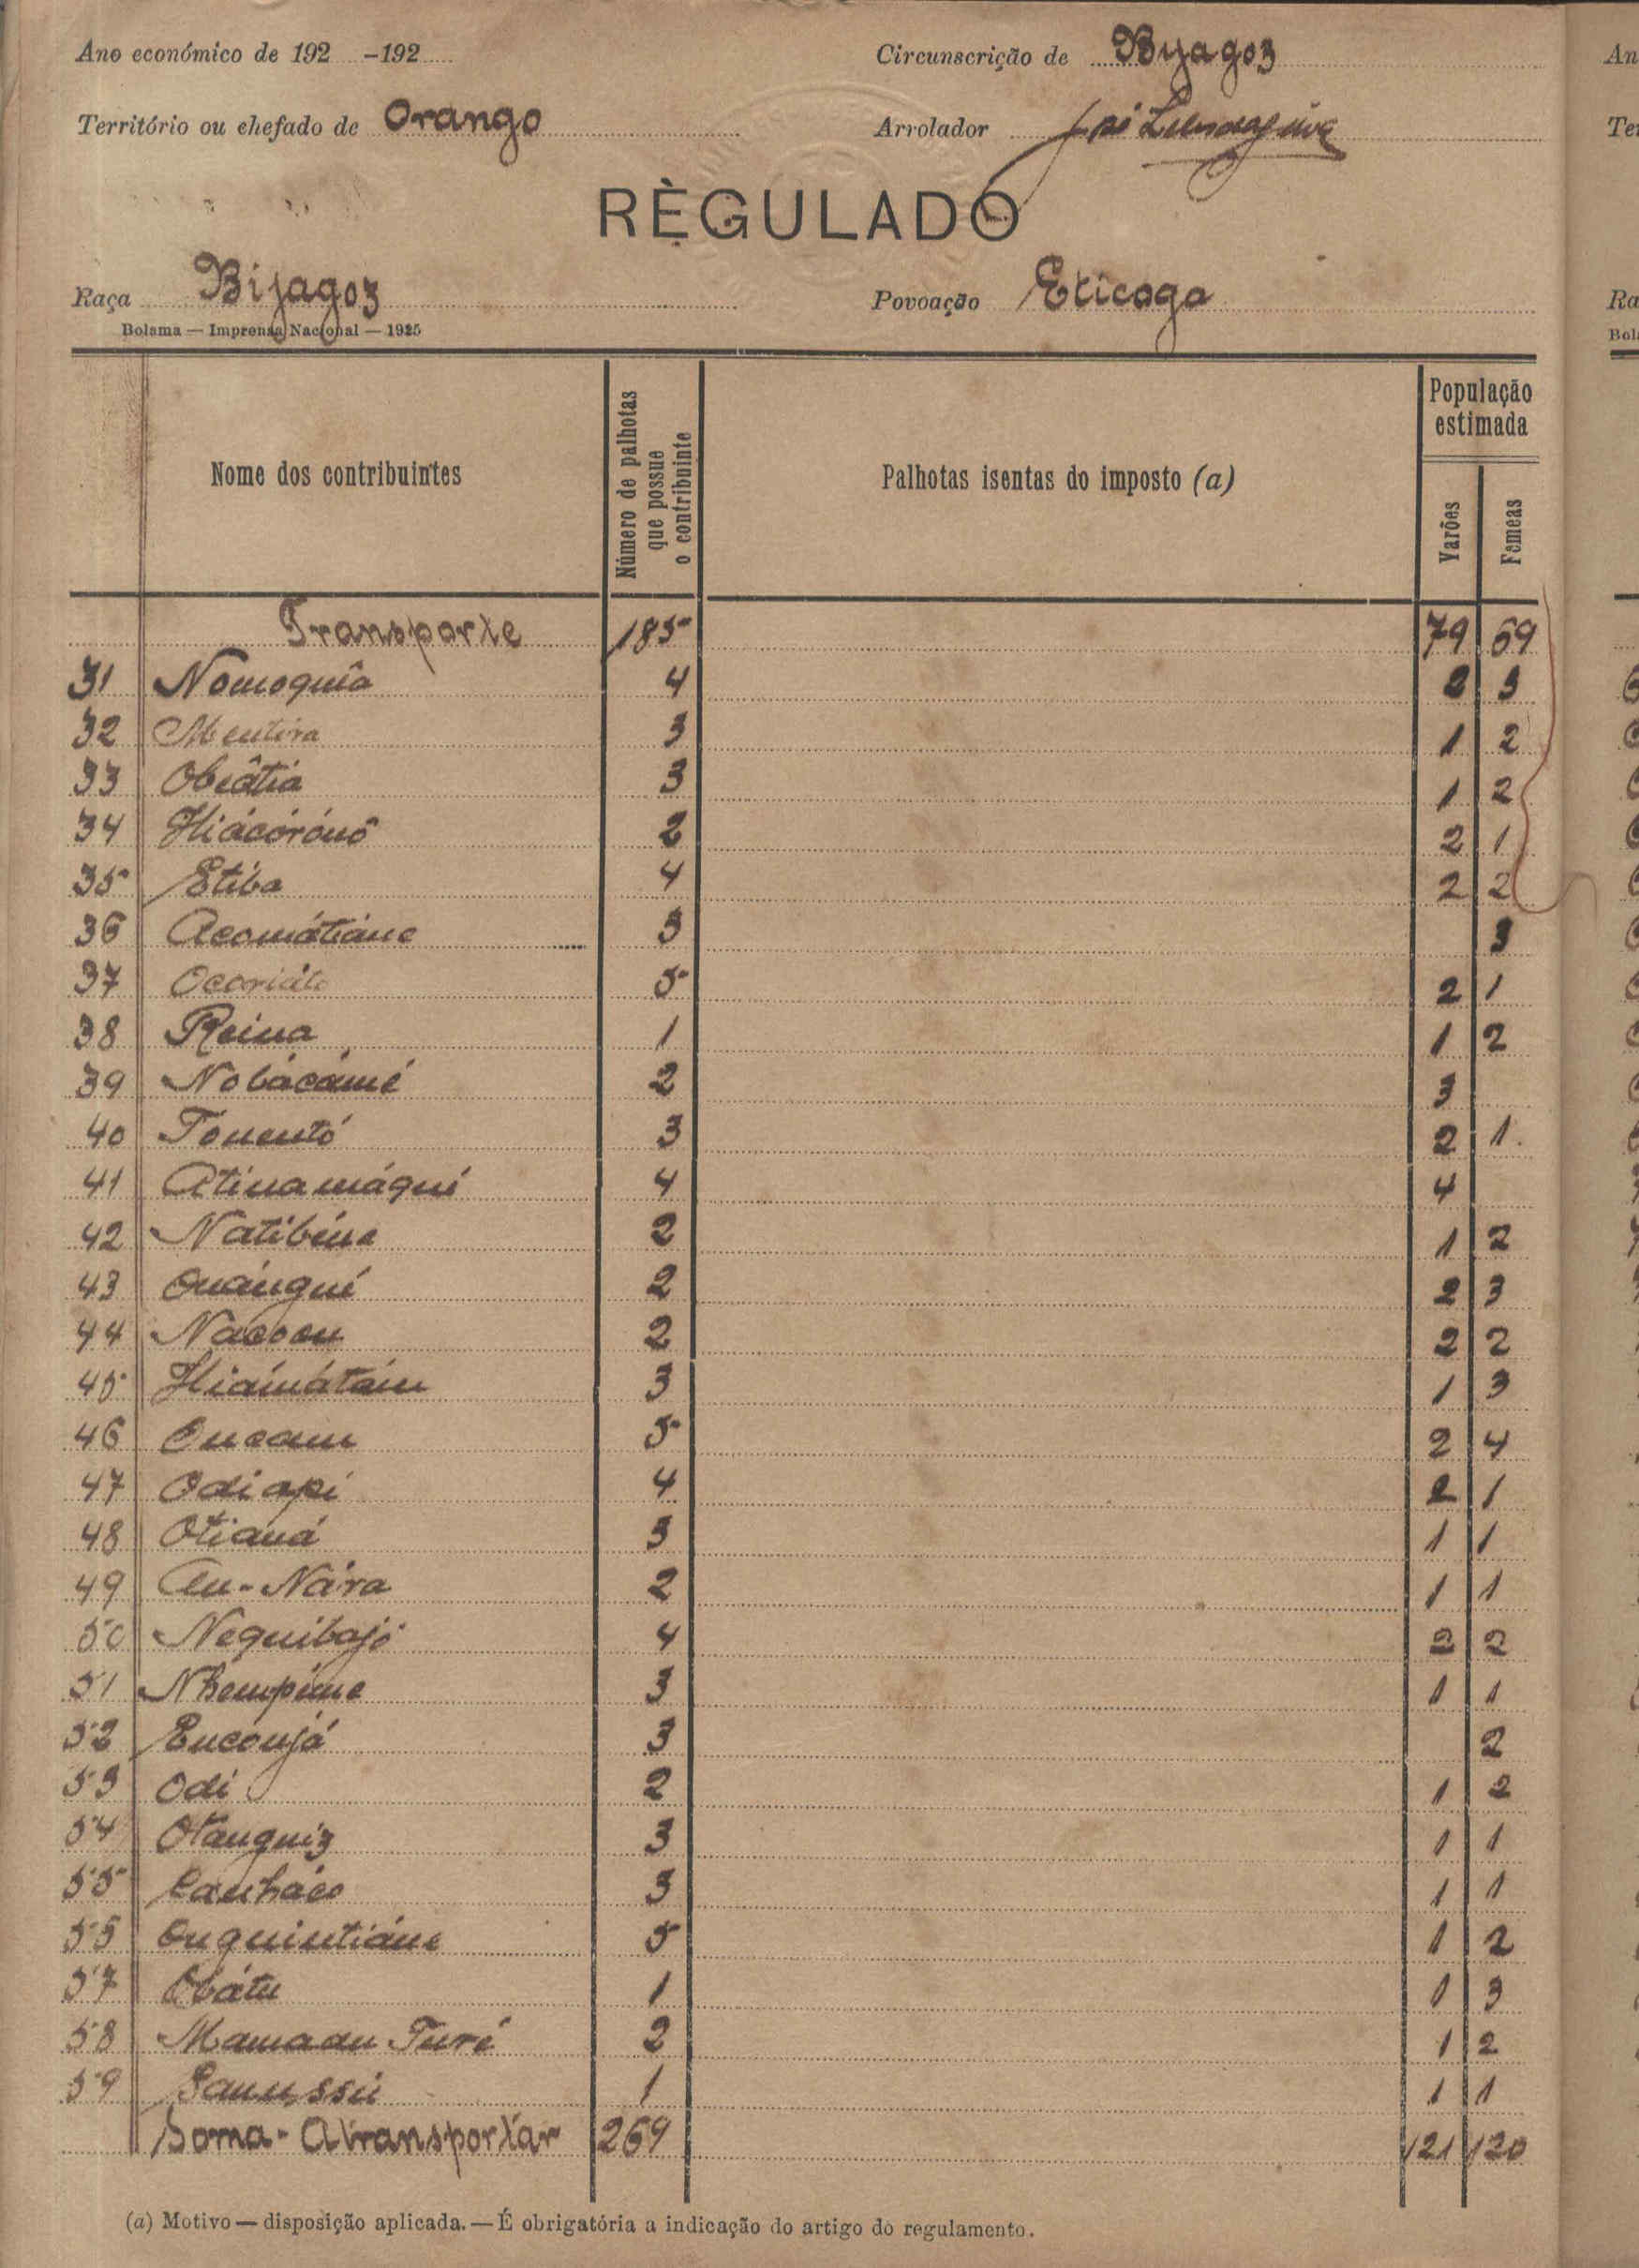 Ano económico de 192 -192
Circunscrição de Byagoz
Território ou chefado de Orango
Arrolador
RÈGULADO
Raça Bijagoz
Povoação Eticoga
Bolama — Imprensa Nacional — 1925
Nome dos contribuintes
Número de palhotas que possue o contribuinte
Palhotas isentas do imposto (a)
População estimada
Varões
Femeas
Transporte 185 79 69
31 Nomoquiâ 4 2 3
32 Mentira 3 1 2
33 Obeâtiá 3 1 2
34 Hiácórónô 2 2 1
35 Etiba 4 2 2
36 Acomátiáne 3 3
37 5 2 1
38 Reina 1 1 2
39 Nobácámé 2 3
40 Tonentó 3 2 1
41 Atinamáqui 4 4
42 Natibéne 2 1 2
43 Ouángui 2 2 3
44 Nacoou 2 2 2
45 Hiámátám 3 1 3
46 Oncam 5 2 4
47 Odiapi 4 2 1
48 Otianá 3 1 1
49 Au-Nára 2 1 1
50 Nequibajó 4 2 2
51 Nhempime 3 1 1
52 Encónjá 3 2
53 Odi 2 1 2
54 Otanguiz 3 1 1
55 Canháco 3 1 1
55 Onquintiáne 5 1 2
57 Obátu 1 1 3
58 Mamadu Turé 2 1 2
59 Sanussii 1 1 1
Soma - A transportar 269 121 120
(a) Motivo — disposição aplicada. — É obrigatória a indicação do artigo do regulamento.
An
Te
Ra
Bol